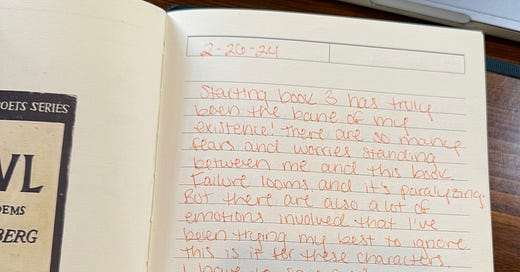 POETS SERIES
WL
EMS
BERG
2-26-24
Starting book 3 has truly
been the bane of my
existence! There are so many
fears and worries standing
between me and this book.
Failure looms, and it's paralyzing.
But there are also a lot of
emotions involved that I've
been trying my best to ignore.
this is it for these characters.
I have to